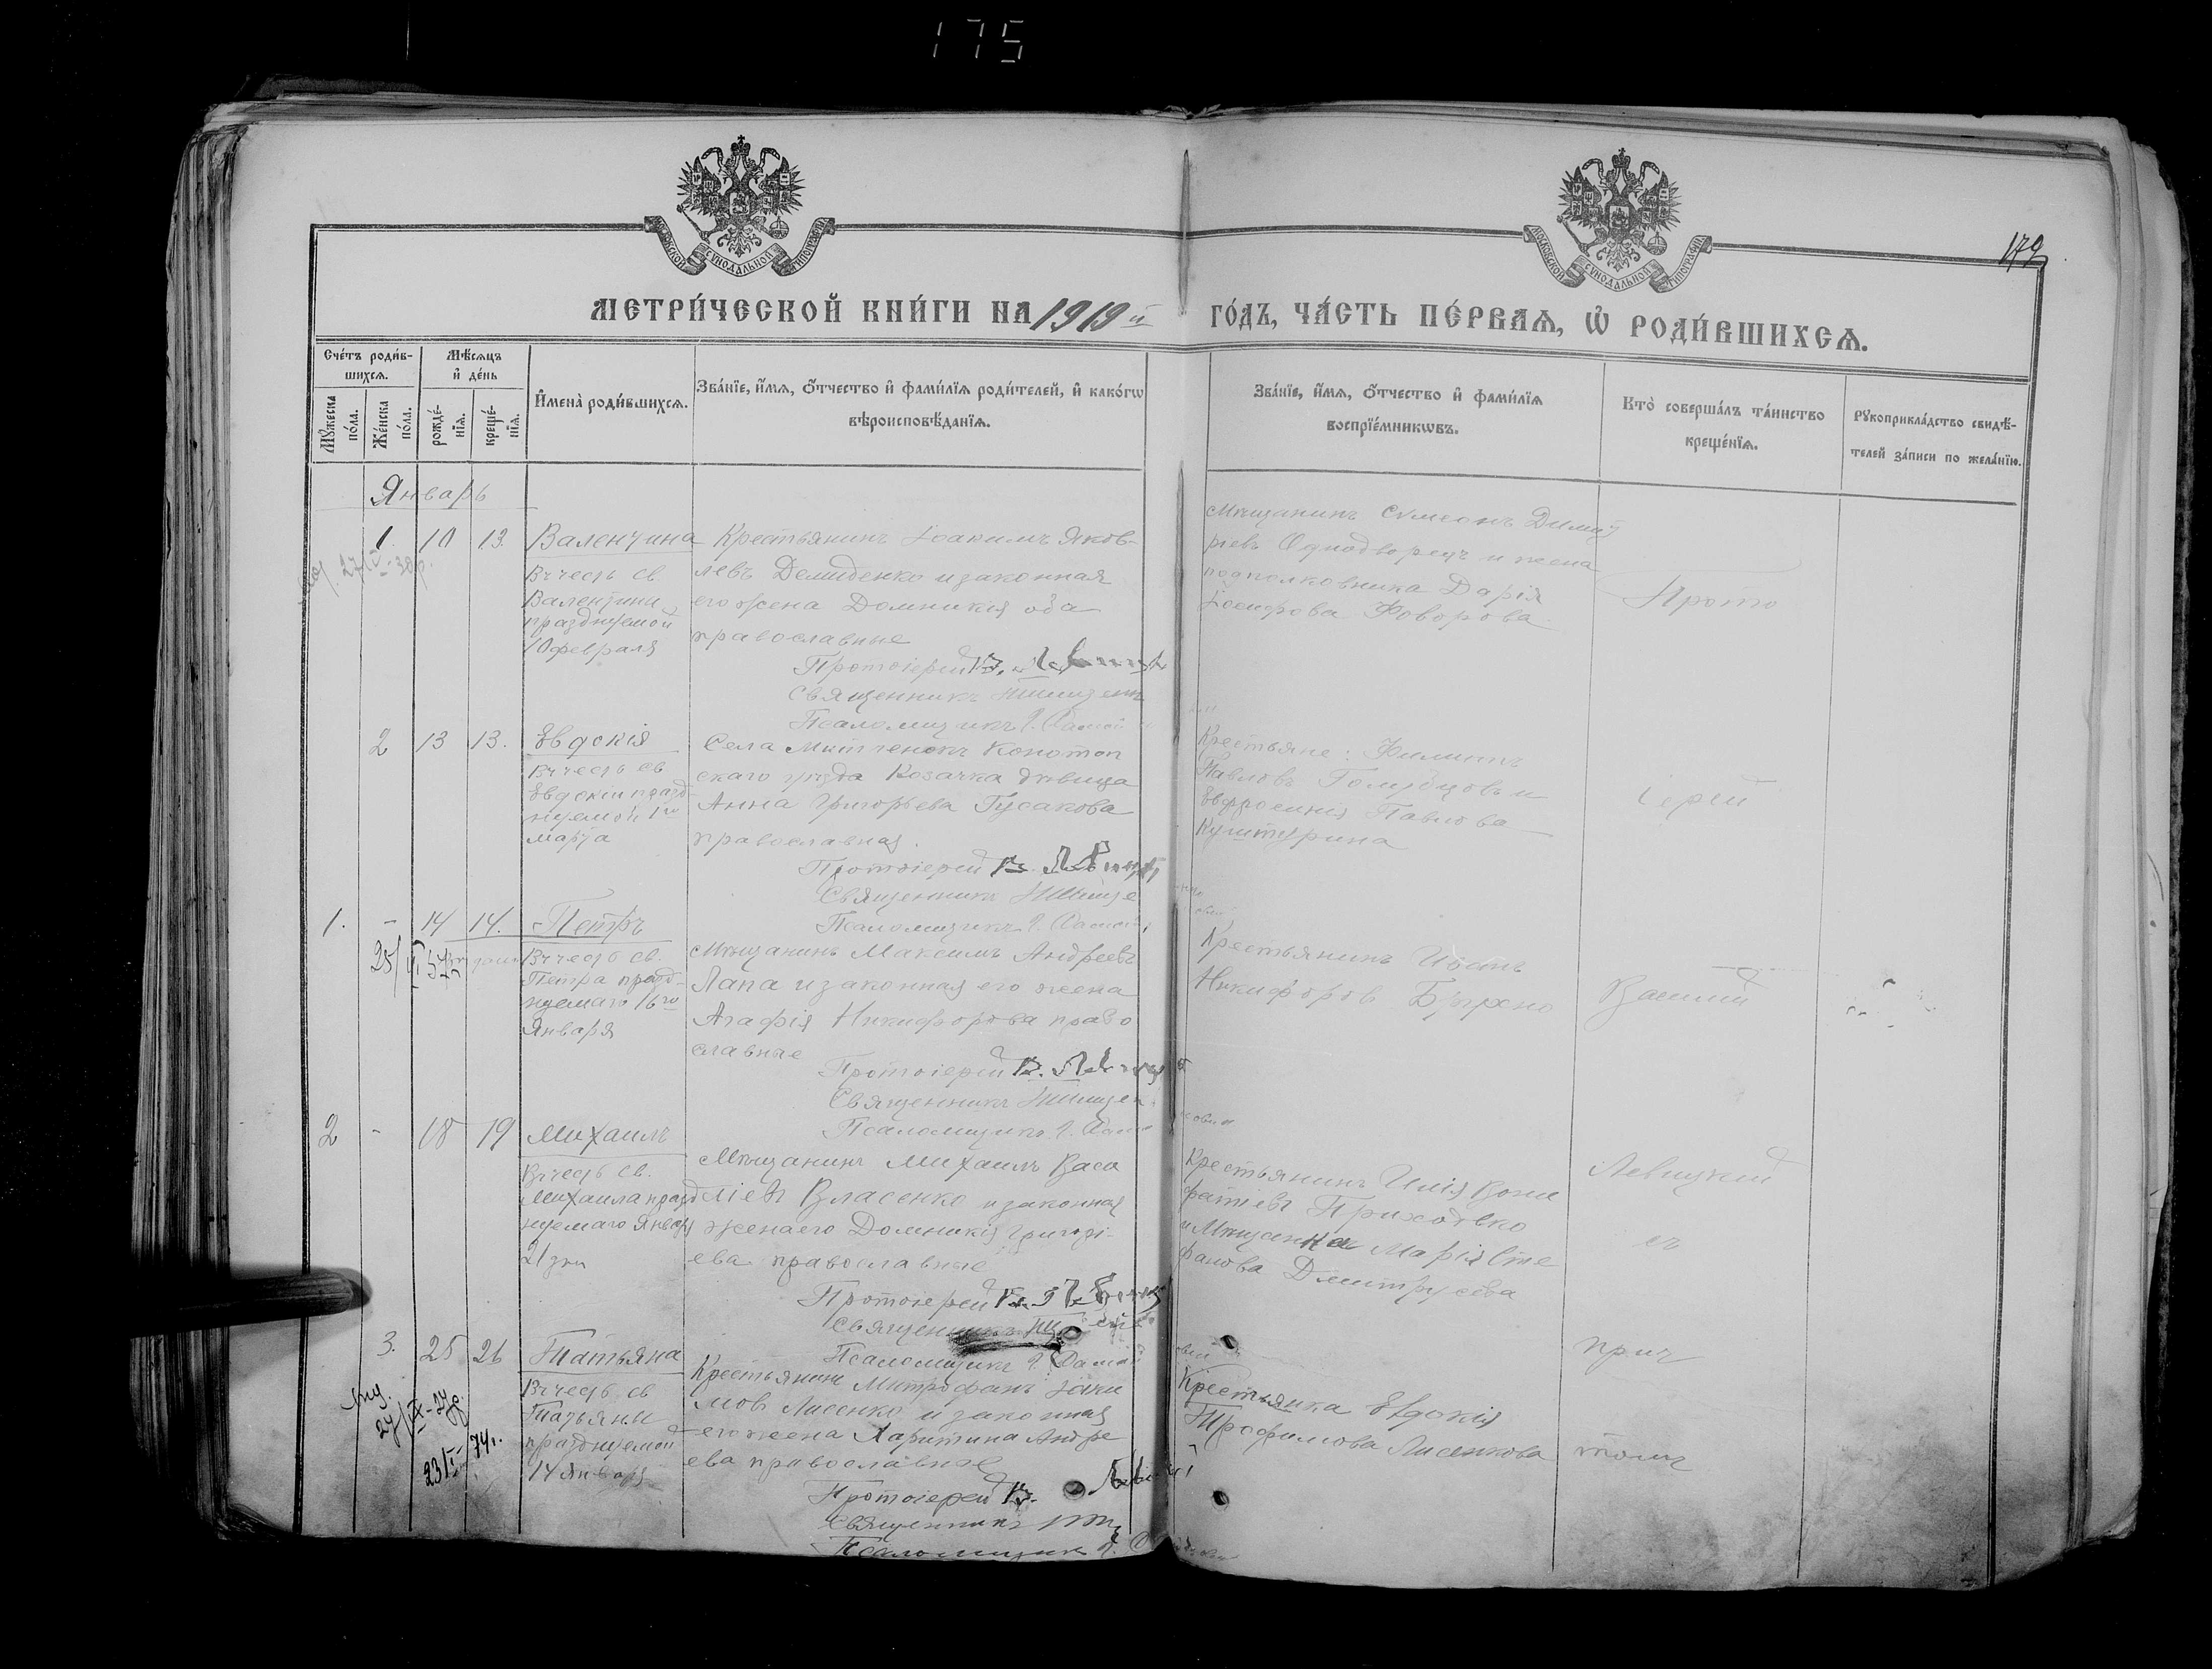 175
МОСКОВСКОЙ СУНОДАЛЬНОЙ ТИПОГРАФІИ
МОСКОВСКОЙ СУНОДАЛЬНОЙ ТИПОГРАФІИ
172
МЕТРИ́ЧЕСКОЙ КНИ́ГИ НА 1919й ГО́ДЪ, ЧА́СТЬ ПЕ́РВАѦ, Ѽ РОДИ́ВШИХСѦ.
Сче́тъ роди́в-
шихсѧ.
Мѣ́сѧцъ
и҆ де́нь
Мꙋ́жеска
по́ла.
Же́нска
по́ла.
рожде́-
нїѧ.
креще́-
нїѧ.
И҆мена̀ роди́вшихсѧ.
Зва́нїе, и҆́мѧ, ѻ҆́тчество и҆ фами́лїѧ роди́телей, и҆ како́гѡ
вѣроисповѣ́данїѧ.
Зва́нїе, и҆́мѧ, ѻ҆́тчество и҆ фами́лїѧ
воспрїе́мникѡвъ.
Кто̀ соверша́лъ та́инство
креще́нїѧ.
Рꙋкоприкла́дство свидѣ́-
телей за́писи по жела́нїю.
Январь
1. 10 13. Валентина
Вчесть св.
Валентины
празднуемой
10 февраля
Крестьянинъ Іоакимъ Яков-
левъ Демиденко и законная
его жена Домникія оба
православные
Протоіерей В. Левицкій
Священникъ
Псаломщикъ
Мѣщанинъ Сѵмеонъ Димит
ріевъ Однодворецъ и жена
подполковника Дарія
Іосифова Фоворова
Прото
2 13 13. Евдокія
Вчесть св
Евдокіи празд-
нуемой 1го
марта
Села Митченокъ Конотоп
скаго уѣзда Козачка дѣвица
Анна Григорьева Гусакова
православная.
Протоіерей В. Левицкій
Священникъ
Псаломщикъ
Крестьяне: Филиппъ
Павловъ Голубцовъ и
Евфросинія Павлова
іерей
1. - 14 14. Петръ
Вчесть св.
Петра празд-
нуемаго 16го
Января
Мѣщанинъ Максимъ Андреевъ
Лапа и законная его жена
Агафія Никифорова право
славные
Протоіерей В. Левицкій
Священникъ
Псаломщикъ
Крестьянинъ
Никифоров
Василій
2 - 18 19 Михаилъ
Вчесть св.
Михаила празд
нуемаго Января
21 дня
Мѣщанинъ Михаилъ Васи
ліевъ Власенко и законная
жена его Домникія Григорі-
ева православные
Протоіерей В. Левицкій
Священникъ
Псаломщикъ
Крестьянинъ Илія
Приходько
и Мѣщанка Марія Сте
фанова Дмитрусева
Левицкій
съ
3. 25 26 Татьяна
Вчесть св
Татьяны
празднуемой
14 Января
Крестьянинъ Митрофанъ Іоаки
мов Лисенко и законная
его жена Харитина Андре
ева православные
Протоіерей В. Левицкій
Священникъ
Псаломщикъ
Крестьянка Евдокія
Трофимова Лисенкова
прич
томъ
23/I 74г.